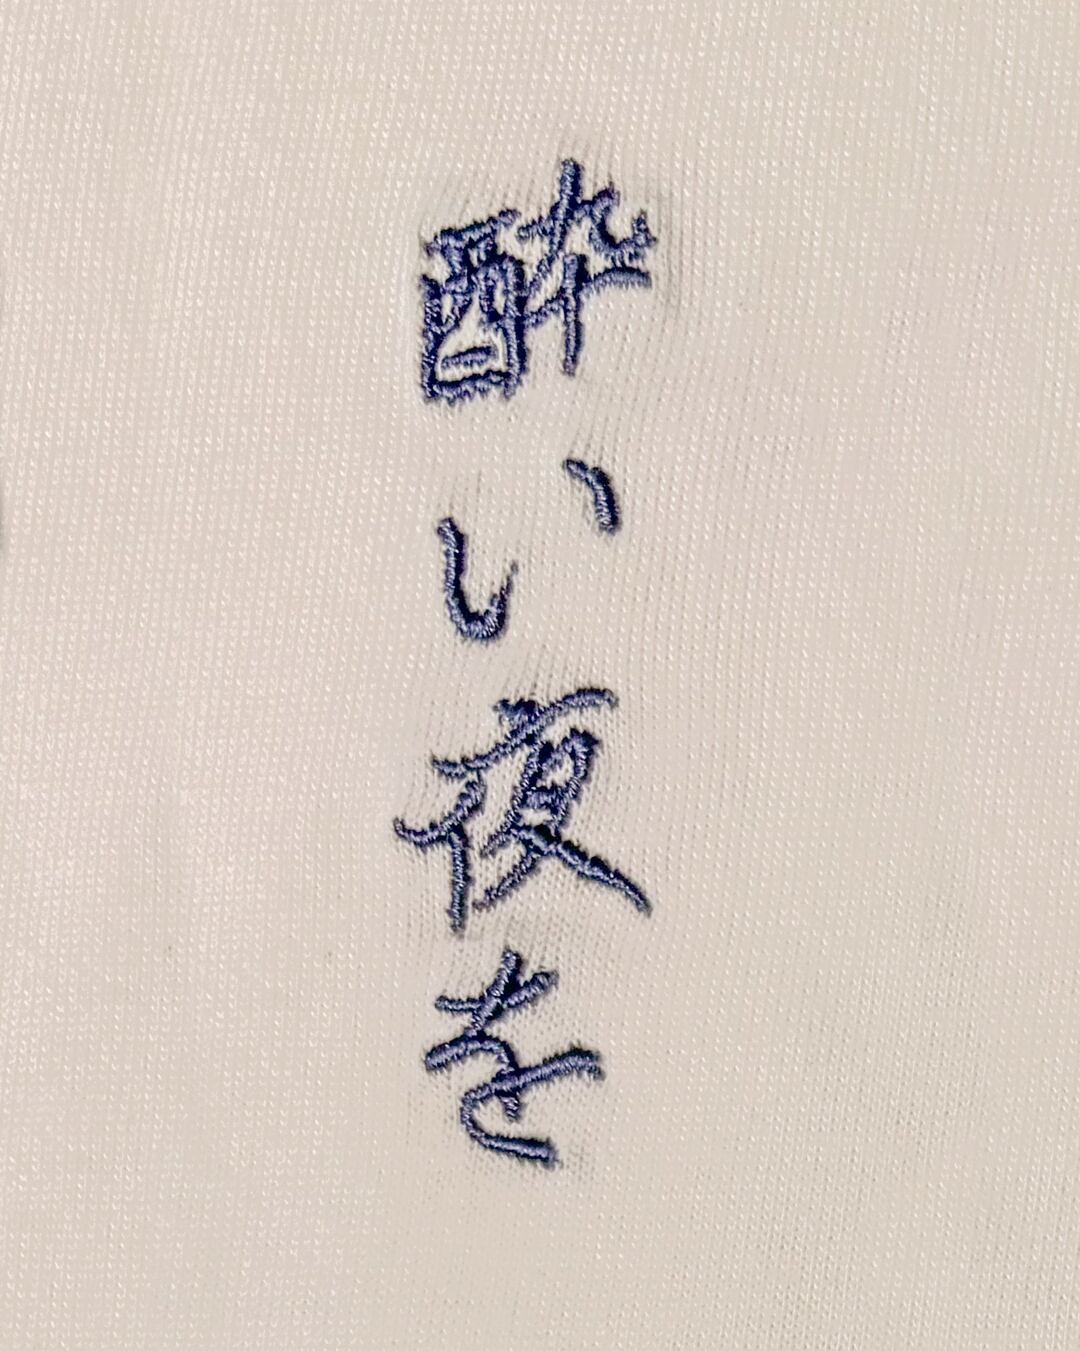 酔いし夜を